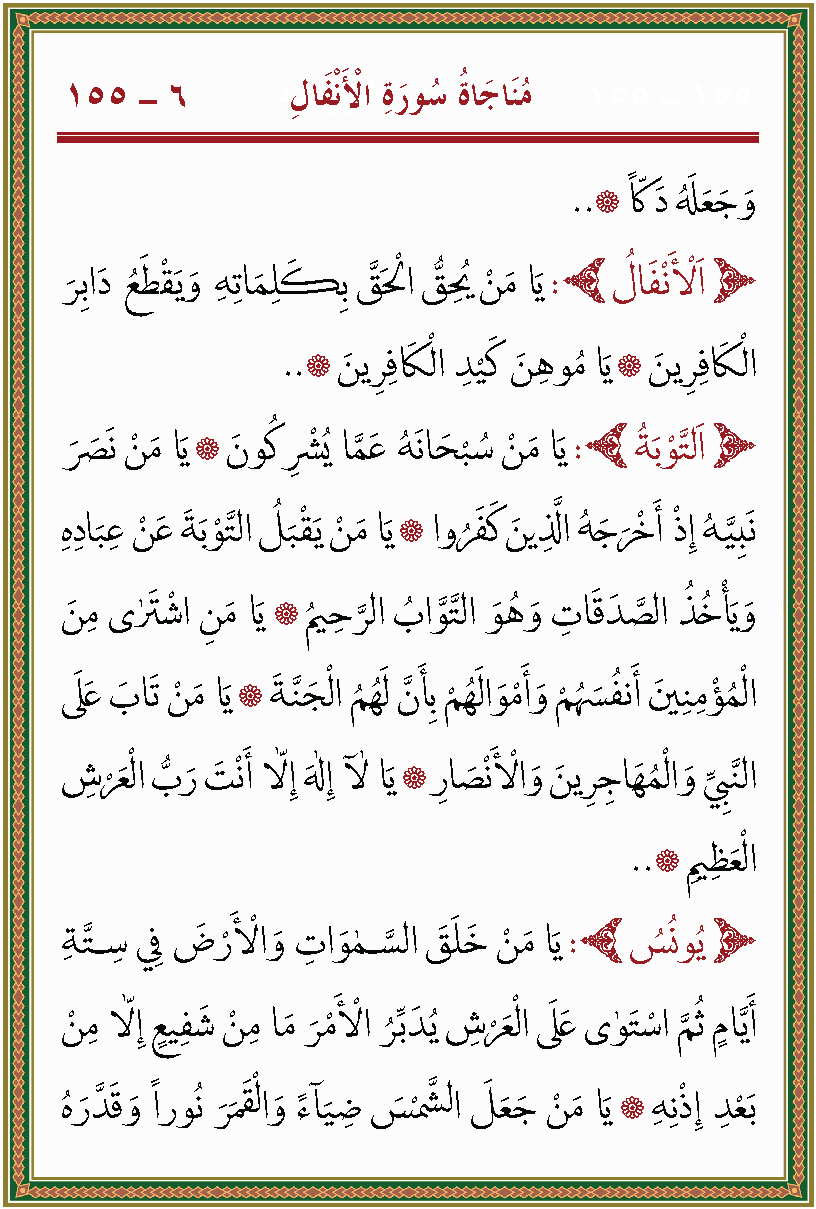 مُنَاجَاةُ سُورَةِ الْأَنْفَالِ ٦ - ١٥٥
وَجَعَلَهُ دَكّاً ۞..
﴿ اَلْأَنْفَالُ ﴾: يَا مَنْ يُحِقُّ الْحَقَّ بِكَلِمَاتِهِ وَيَقْطَعُ دَابِرَ
الْكَافِرِينَ ۞ يَا مُوهِنَ كَيْدِ الْكَافِرِينَ ۞..
﴿ اَلتَّوْبَةُ ﴾: يَا مَنْ سُبْحَانَهُ عَمَّا يُشْرِكُونَ ۞ يَا مَنْ نَصَرَ
نَبِيَّهُ إِذْ أَخْرَجَهُ الَّذِينَ كَفَرُوا ۞ يَا مَنْ يَقْبَلُ التَّوْبَةَ عَنْ عِبَادِهِ
وَيَأْخُذُ الصَّدَقَاتِ وَهُوَ التَّوَّابُ الرَّحِيمُ ۞ يَا مَنِ اشْتَرٰى مِنَ
الْمُؤْمِنِينَ أَنفُسَهُمْ وَأَمْوَالَهُمْ بِأَنَّ لَهُمُ الْجَنَّةَ ۞ يَا مَنْ تَابَ عَلَى
النَّبِيِّ وَالْمُهَاجِرِينَ وَالْأَنْصَارِ ۞ يَا لٰآ إِلٰهَ إِلّٰا أَنْتَ رَبُّ الْعَرْشِ
الْعَظِيمِ ۞..
﴿ يُونُسُ ﴾: يَا مَنْ خَلَقَ السَّمٰوَاتِ وَالْأَرْضَ فِي سِتَّةِ
أَيَّامٍ ثُمَّ اسْتَوٰى عَلَى الْعَرْشِ يُدَبِّرُ الْأَمْرَ مَا مِنْ شَفِيعٍ إِلّٰا مِنْ
بَعْدِ إِذْنِهِ ۞ يَا مَنْ جَعَلَ الشَّمْسَ ضِيَآءً وَالْقَمَرَ نُوراً وَقَدَّرَهُ